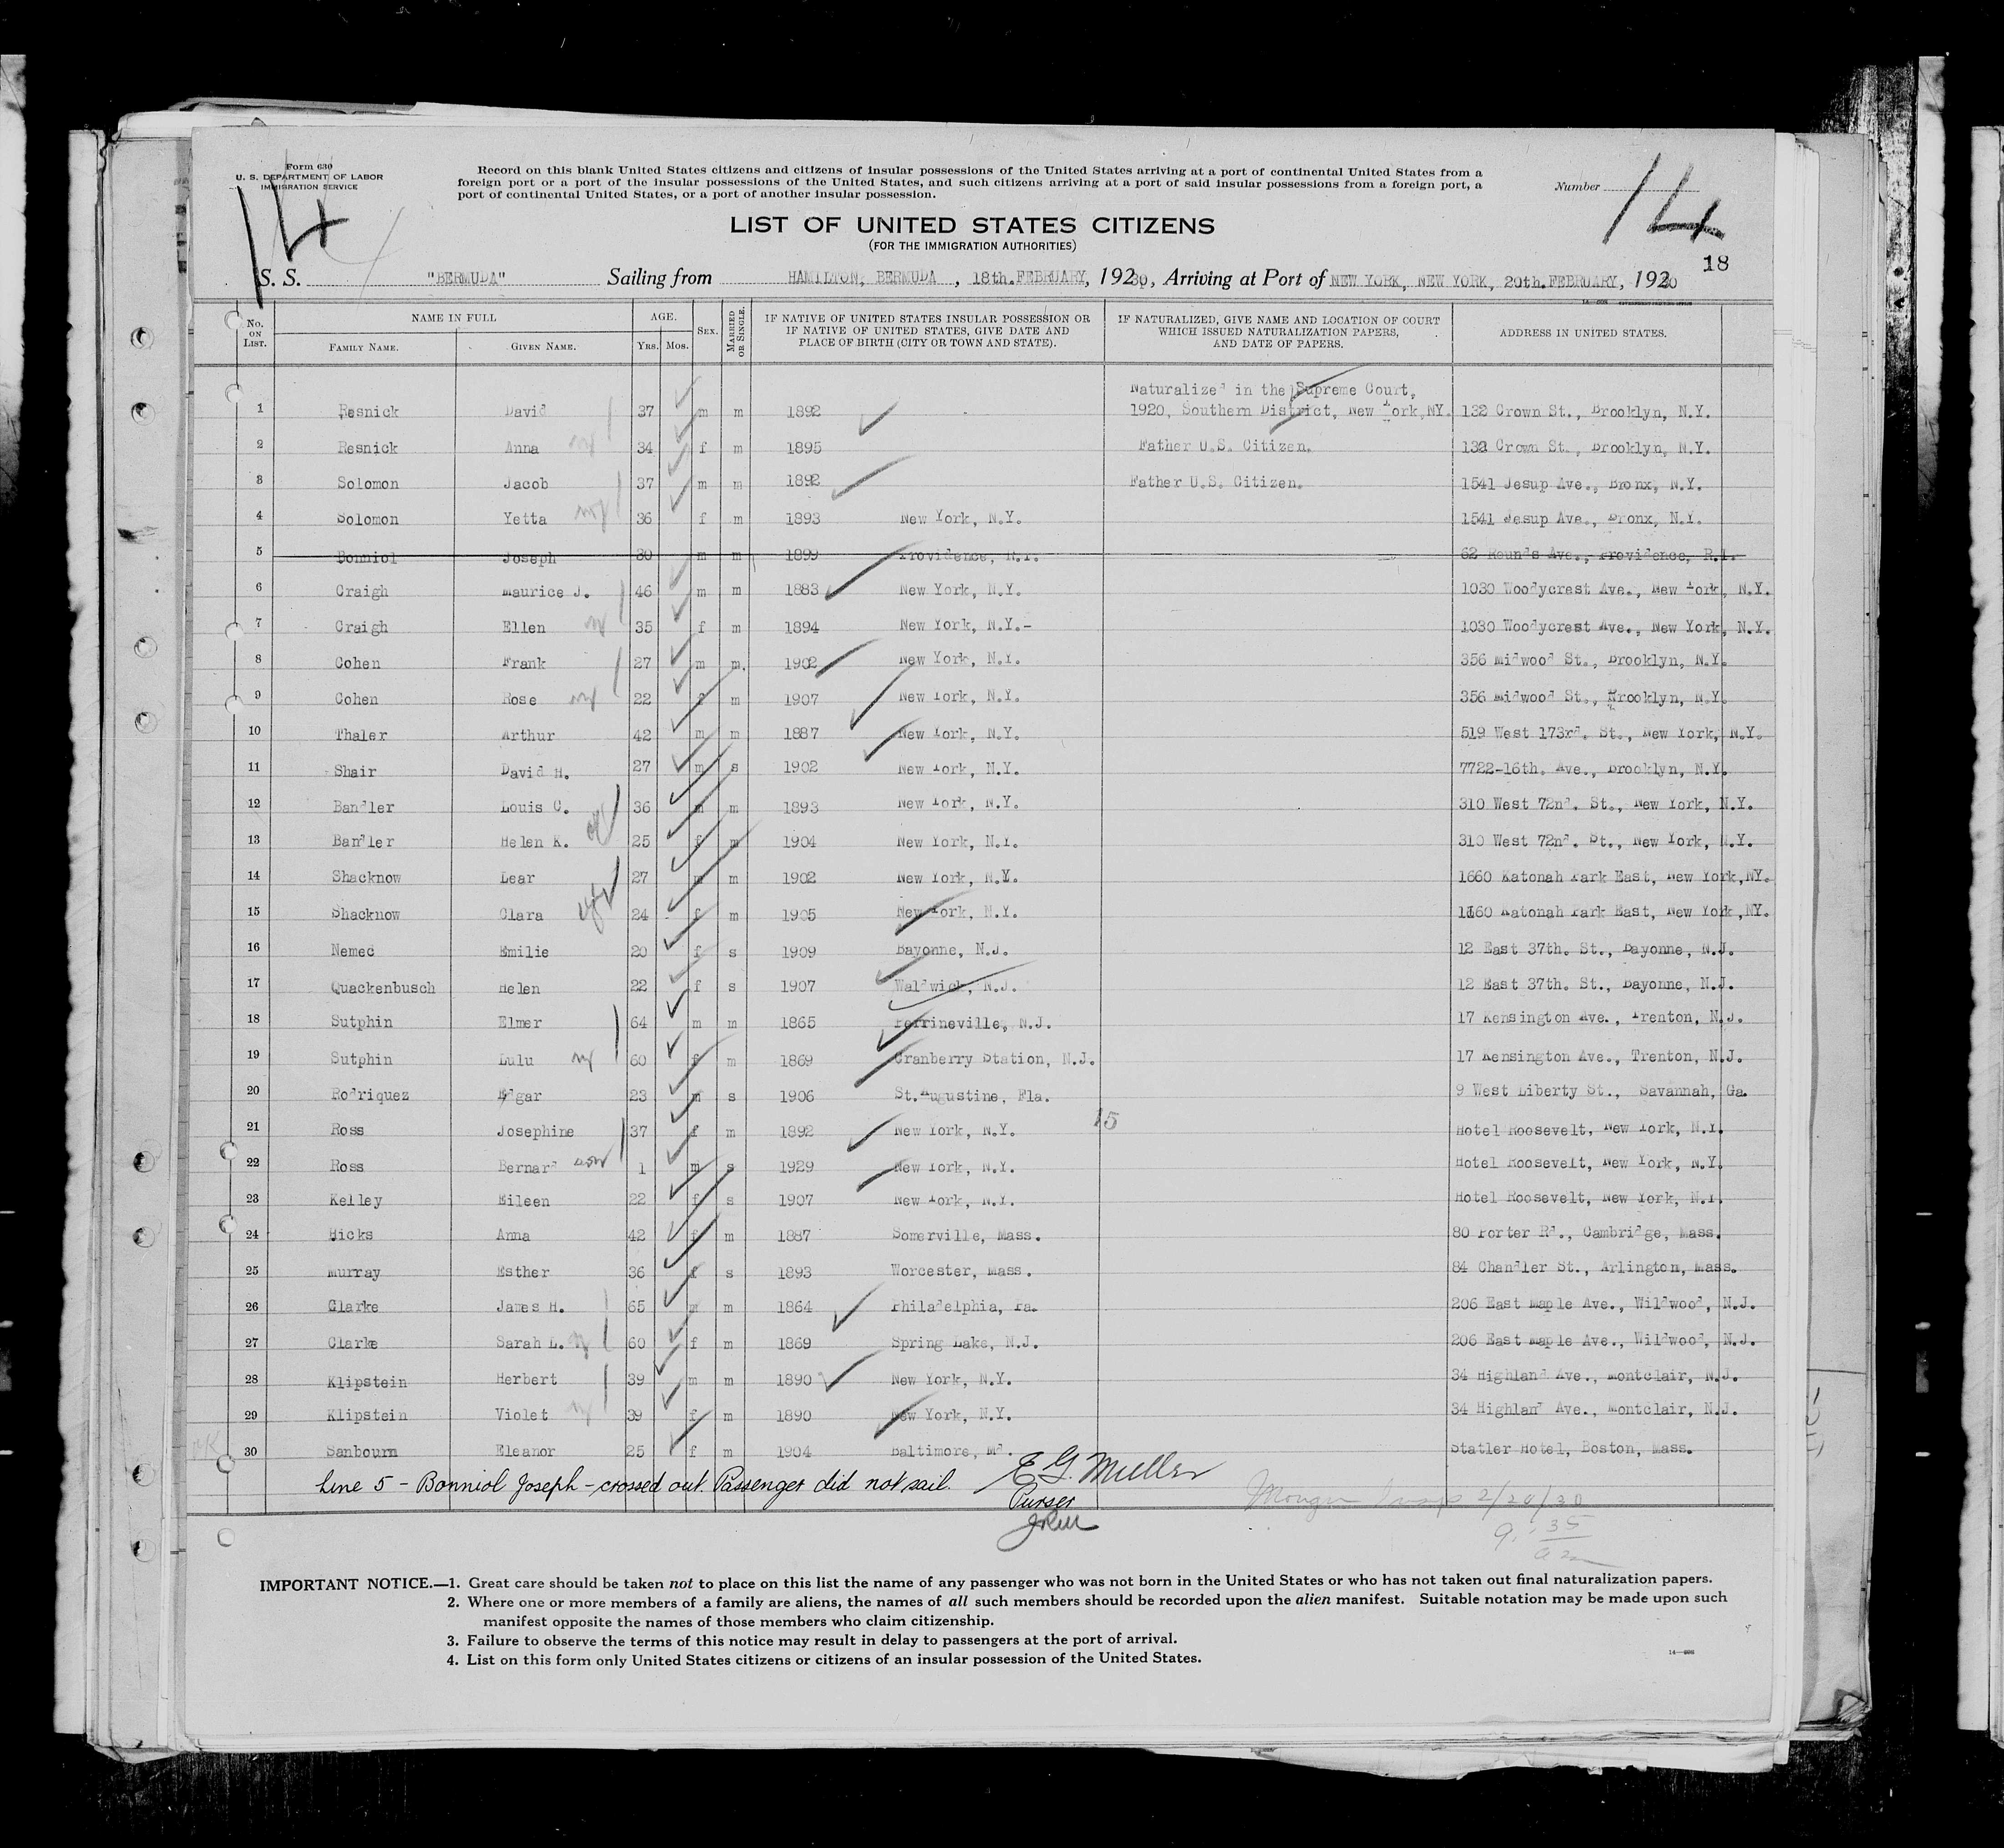 Form 630
U. S. DEPARTMENT OF LABOR
IMMIGRATION SERVICE
Record on this blank United States citizens and citizens of insular possessions of the United States arriving at a port of continental United States from a
foreign port or a port of the insular possessions of the United States, and such citizens arriving at a port of said insular possessions from a foreign port, a
port of continental United States, or a port of another insular possession.
Number
14
14
LIST OF UNITED STATES CITIZENS
(FOR THE IMMIGRATION AUTHORITIES)
18
S. S. "BERMUDA" Sailing from HAMILTON, BERMUDA, 18th. FEBRUARY, 1930, Arriving at Port of NEW YORK, NEW YORK, 20th. FEBRUARY, 1930
No. ON LIST. NAME IN FULL FAMILY NAME. GIVEN NAME. AGE. YRS. MOS. SEX. MARRIED OR SINGLE. IF NATIVE OF UNITED STATES INSULAR POSSESSION OR IF NATIVE OF UNITED STATES, GIVE DATE AND PLACE OF BIRTH (CITY OR TOWN AND STATE). IF NATURALIZED, GIVE NAME AND LOCATION OF COURT WHICH ISSUED NATURALIZATION PAPERS, AND DATE OF PAPERS. ADDRESS IN UNITED STATES.
Naturalized in the Supreme Court,
1 Resnick David 37 m m 1892 1920, Southern District, New York,NY. 132 Crown St., Brooklyn, N.Y.
2 Resnick Anna 34 f m 1895 Father U.S. Citizen. 132 Crown St., Brooklyn, N.Y.
3 Solomon Jacob 37 m m 1892 Father U.S. Citizen. 1541 Jesup Ave., Bronx, N.Y.
4 Solomon Yetta 36 f m 1893 New York, N.Y. 1541 Jesup Ave., Bronx, N.Y.
5 Bonniol Joseph 30 m m 1899 Providence, R.I. 62 Rounds Ave., Providence, R.I.
6 Craigh Maurice J. 46 m m 1883 New York, N.Y. 1030 Woodycrest Ave., New York, N.Y.
7 Craigh Ellen 35 f m 1894 New York, N.Y.- 1030 Woodycrest Ave., New York, N.Y.
8 Cohen Frank 27 m m. 1902 New York, N.Y. 356 Midwood St., Brooklyn, N.Y.
9 Cohen Rose 22 f m 1907 New York, N.Y. 356 Midwood St., Brooklyn, N.Y.
10 Thaler Arthur 42 m m 1887 New York, N.Y. 519 West 173rd. St., New York, N.Y.
11 Shair David H. 27 m s 1902 New York, N.Y. 7722-16th. Ave., Brooklyn, N.Y.
12 Bandler Louis C. 36 m m 1893 New York, N.Y. 310 West 72nd. St., New York, N.Y.
13 Bandler Helen K. 25 f m 1904 New York, N.Y. 310 West 72nd. St., New York, N.Y.
14 Shacknow Lear 27 m m 1902 New York, N.Y. 1660 Katonah Park East, New York,NY.
15 Shacknow Clara 24 f m 1905 New York, N.Y. 1660 Katonah Park East, New York,NY.
16 Nemec Emilie 20 f s 1909 Bayonne, N.J. 12 East 37th. St., Bayonne, N.J.
17 Quackenbusch Helen 22 f s 1907 Waldwick, N.J. 12 East 37th. St., Bayonne, N.J.
18 Sutphin Elmer 64 m m 1865 Perrineville, N.J. 17 Kensington Ave., Trenton, N.J.
19 Sutphin Lulu 60 f m 1869 Cranberry Station, N.J. 17 Kensington Ave., Trenton, N.J.
20 Rodriquez Edgar 23 m s 1906 St. Augustine, Fla. 9 West Liberty St., Savannah, Ga.
15
21 Ross Josephine 37 f m 1892 New York, N.Y. Hotel Roosevelt, New York, N.Y.
22 Ross Bernard son 1 m s 1929 New York, N.Y. Hotel Roosevelt, New York, N.Y.
23 Kelley Eileen 22 f s 1907 New York, N.Y. Hotel Roosevelt, New York, N.Y.
24 Hicks Anna 42 f m 1887 Somerville, Mass. 80 Porter Rd., Cambridge, Mass.
25 Murray Esther 36 f s 1893 Worcester, Mass. 84 Chandler St., Arlington, Mass.
26 Clarke James H. 65 m m 1864 Philadelphia, Pa. 206 East Maple Ave., Wildwood, N.J.
27 Clarke Sarah L. 60 f m 1869 Spring Lake, N.J. 206 East Maple Ave., Wildwood, N.J.
28 Klipstein Herbert 39 m m 1890 New York, N.Y. 34 Highland Ave., Montclair, N.J.
29 Klipstein Violet 39 f m 1890 New York, N.Y. 34 Highland Ave., Montclair, N.J.
30 Sanbourn Eleanor 25 f m 1904 Baltimore, Md. Statler Hotel, Boston, Mass.
Line 5 - Bonniol Joseph - crossed out. Passenger did not sail. E G. Muller
Purser
2/20/30
9:35
am
IMPORTANT NOTICE.—1. Great care should be taken not to place on this list the name of any passenger who was not born in the United States or who has not taken out final naturalization papers.
2. Where one or more members of a family are aliens, the names of all such members should be recorded upon the alien manifest. Suitable notation may be made upon such
manifest opposite the names of those members who claim citizenship.
3. Failure to observe the terms of this notice may result in delay to passengers at the port of arrival.
4. List on this form only United States citizens or citizens of an insular possession of the United States.